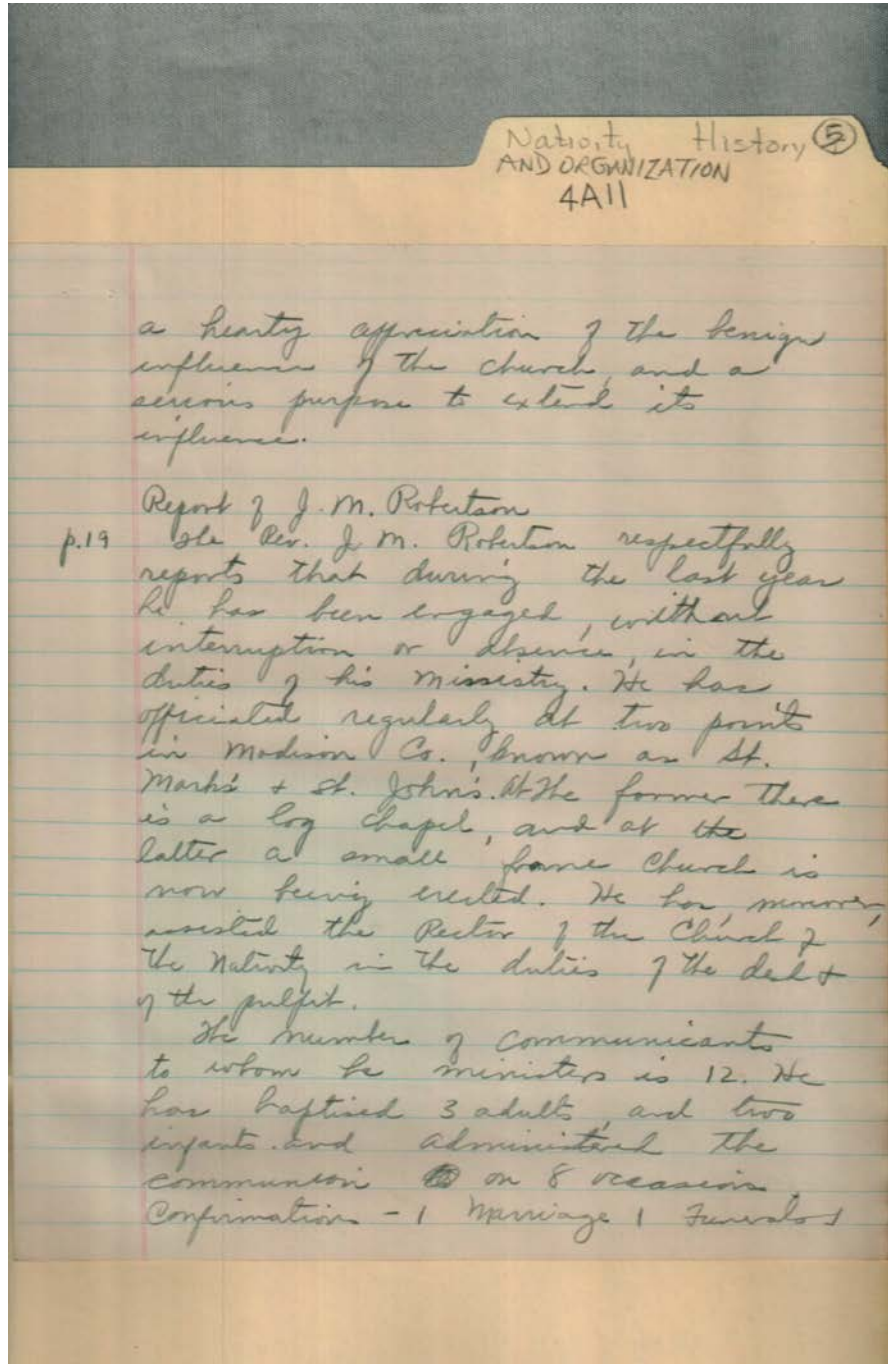 Nativity History 5
AND ORGANIZATION
4A11
a hearty appreciation of the benign
influence of the church, and a
serious purpose to extend its
influence.
Report of J. M. Robertson
p.19 The Rev. J. M. Robertson respectfully
reports that during the last year
he has been engaged, without
interruption or absence, in the
duties of his missistry. He has
officiated regularly at two points
in Madison Co., known as St.
Mark's + St. John's. At the former there
is a log chapel, and at the
latter a small frame Church is
now being erected. He has, moreover,
assisted the Rector of the Church of
the Nativity in the duties of the desk +
of the pulpit.
The number of communicants
to whom he ministers is 12. He
has baptised 3 adults, and two
infants and administered the
communion on 8 occasions.
Confirmation - 1 Marriage 1 Funerals 1